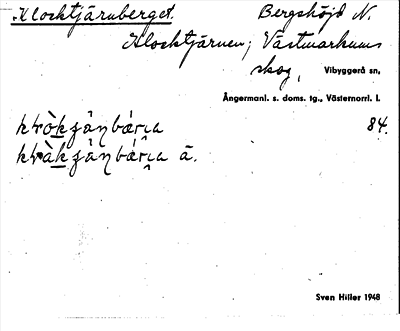 Klocktjärnberget. Bergshöjd N.
Klocktjärnen; Västmarkums
skog, Vibyggerå sn,
Ångermanl. s. doms. tg., Västernorrl. l.
84.
ā.
Sven Hiller 1948